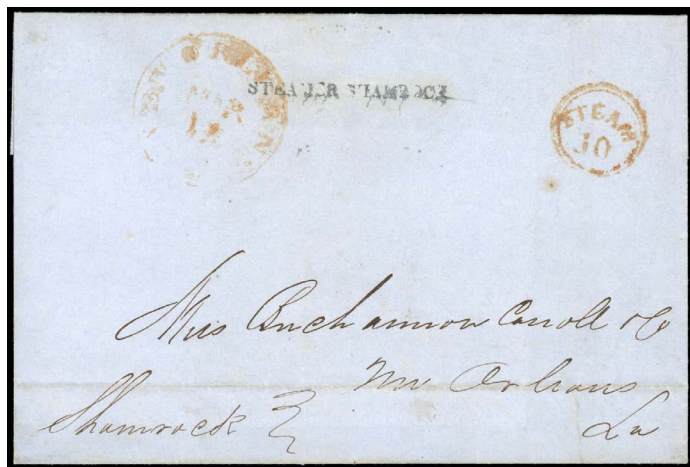 NEW ORLEANS
MAR
STEAMER SHAMROCK
STEAM
10
Mess Buchannon Carroll & Co
New Orleans
La
Shamrock